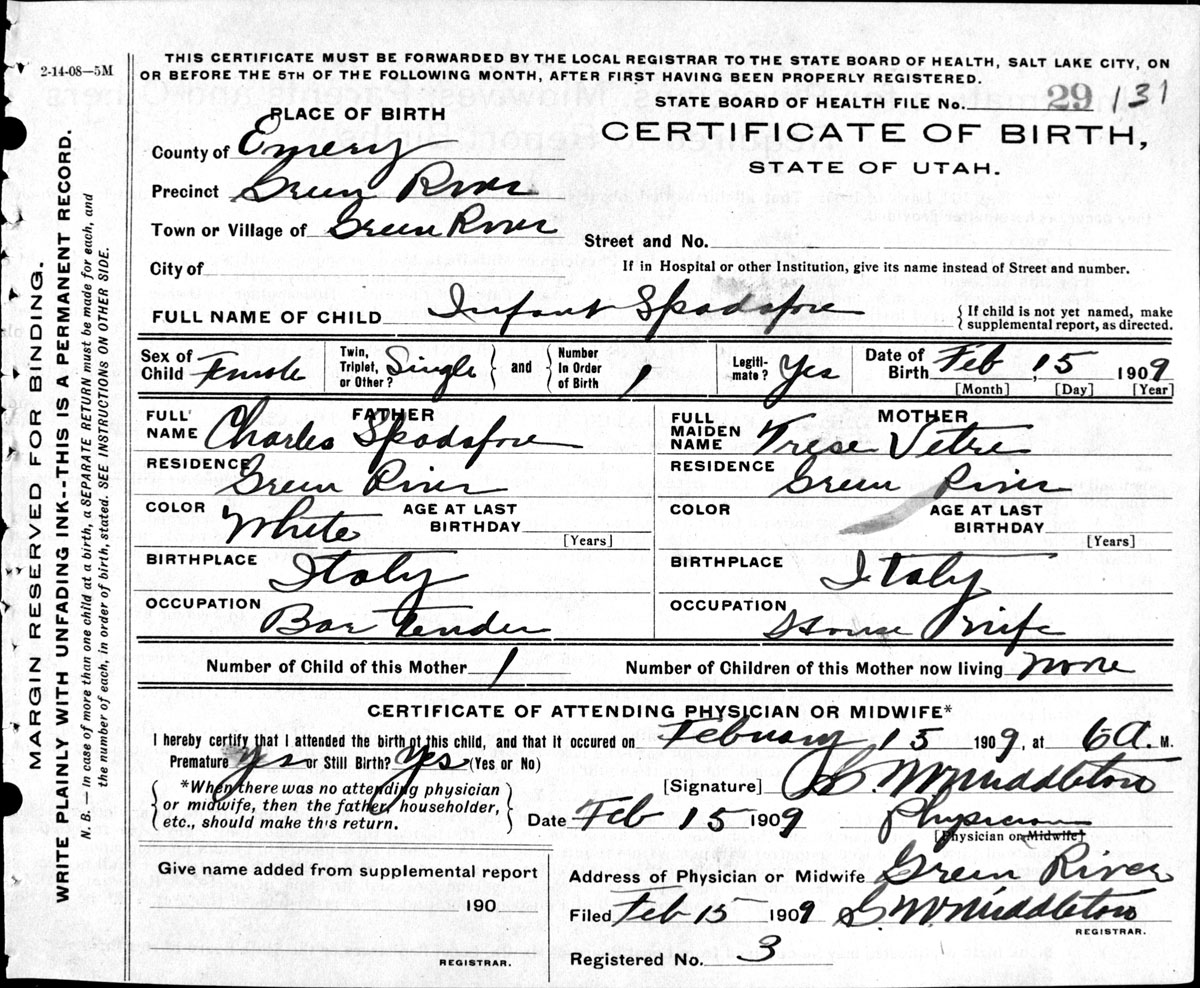 2-14-08—5M
THIS CERTIFICATE MUST BE FORWARDED BY THE LOCAL REGISTRAR TO THE STATE BOARD OF HEALTH, SALT LAKE CITY, ON
OR BEFORE THE 5TH OF THE FOLLOWING MONTH, AFTER FIRST HAVING BEEN PROPERLY REGISTERED.
STATE BOARD OF HEALTH FILE No. 29 131
PLACE OF BIRTH
CERTIFICATE OF BIRTH,
STATE OF UTAH.
County of Emery
Precinct Green River
Town or Village of Green River
Street and No.
City of
If in Hospital or other Institution, give its name instead of Street and number.
FULL NAME OF CHILD Infant Spadafore
{ If child is not yet named, make
supplemental report, as directed.
Sex of Child Female
Twin, Triplet, or Other? Single } and { Number In Order of Birth 1
Legiti-mate? Yes
Date of Birth Feb, 15 1909
[Month] [Day] [Year]
FATHER
FULL NAME Charles Spadafore
RESIDENCE Green River
COLOR White
AGE AT LAST BIRTHDAY [Years]
BIRTHPLACE Italy
OCCUPATION Bar Tender
MOTHER
FULL MAIDEN NAME Trese Vetre
RESIDENCE Green River
COLOR
AGE AT LAST BIRTHDAY [Years]
BIRTHPLACE Italy
OCCUPATION House Wife
Number of Child of this Mother 1
Number of Children of this Mother now living none
CERTIFICATE OF ATTENDING PHYSICIAN OR MIDWIFE*
I hereby certify that I attended the birth of this child, and that it occured on February 15 1909, at 6 A. M.
Premature Yes or Still Birth? Yes (Yes or No)
*When there was no attending physician
or midwife, then the father, householder,
etc., should make this return.
[Signature] W. Middleton
Date Feb 15 1909 Physician
[Physician or Midwife]
Give name added from supplemental report
190
REGISTRAR.
Address of Physician or Midwife Green River
Filed Feb 15 1909 W. Middleton
REGISTRAR.
Registered No. 3
MARGIN RESERVED FOR BINDING.
WRITE PLAINLY WITH UNFADING INK--THIS IS A PERMANENT RECORD.
N. B. — In case of more than one child at a birth, a SEPARATE RETURN must be made for each, and
the number of each, in order of birth, stated. SEE INSTRUCTIONS ON OTHER SIDE.